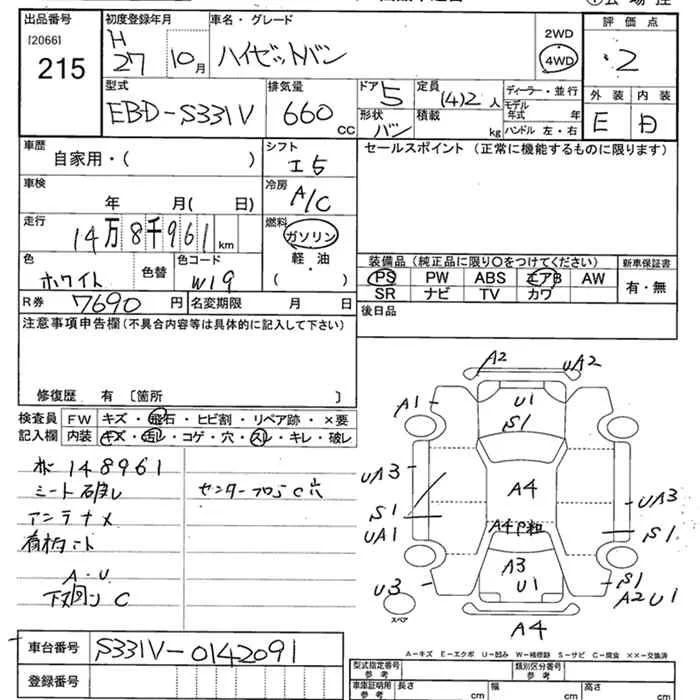 出品番号 初度登録年月 車名・グレード 評価点
[2066] H 27 10月 ハイゼットバン 2WD 4WD 2
215
型式 排気量 ドア 定員 ディーラー・並行 外装 内装
EBD-S331V 660 CC 5 (4)2人 モデル年式 年 E D
形状 バン 積載 kg ハンドル 左・右
車歴 自家用・( ) シフト I5 セールスポイント(正常に機能するものに限ります)
車検 年 月( 日) 冷房 A/C
走行 14万8千961km 燃料 ガソリン 軽油・( )
色 ホワイト 色替 色コード W19
装備品(純正品に限り○をつけてください) 新車保証書
PS PW ABS エアB AW 有・無
SR ナビ TV カワ
R券 7690円 名変期限 月 日 後日品
注意事項申告欄(不具合内容等は具体的に記入して下さい)
修復歴 有 [箇所 ]
検査員記入欄 FW キズ・飛石・ヒビ割・リペア跡・×要
内装 キズ・汚レ・コゲ・穴・スレ・キレ・破レ
148961
シート破レ センターフロアC穴
アンテナメ
A・U
下廻りC
A2 UA2
A1 U1
S1
UA3 A4 UA3
S1 S1
UA1 A4
A3
U3 U1 S1
A2U1
スペア A4
A-キズ E-エクボ U-凹み W-補修跡 S-サビ C-腐食 ××-交換済
車台番号 S331V-0142091
登録番号
型式指定番号 参考 類別区分番号 参考
車庫証明用 参考 長さ cm 幅 cm 高さ cm